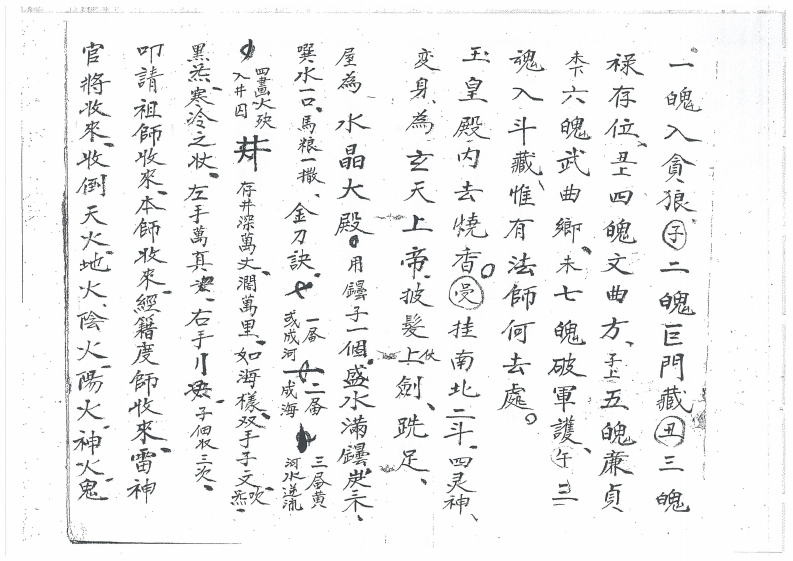 一魄入貪狼、子二魄巨門藏丑三魄
禄存位、丑上四魄文曲方、子上五魄廉貞
六魄武曲鄉、未七魄破軍護、午三
魂入斗藏、惟有法師何去處。
玉皇殿内去燒香。受挂南北二斗、四灵神、
变身為玄天上帝、披髮上劍、跣足、
屋為水晶大殿。用鐔子一個、盛水滿鐔、炭三、
噀水一口、馬粮一撒、金刀訣、一畨或成河二畨成海三畨黄河水逆流
四畫火殃入井囚井存井深萬丈、濶萬里、如海樣、双手子文吹炁
黑炁、寒冷之状、左手萬真、右手川子佃収三次、
叩請祖師收來、本師收來、經籍度師收來、雷神
官將收來、收倒天火、地火、陰火、陽火、神火、鬼